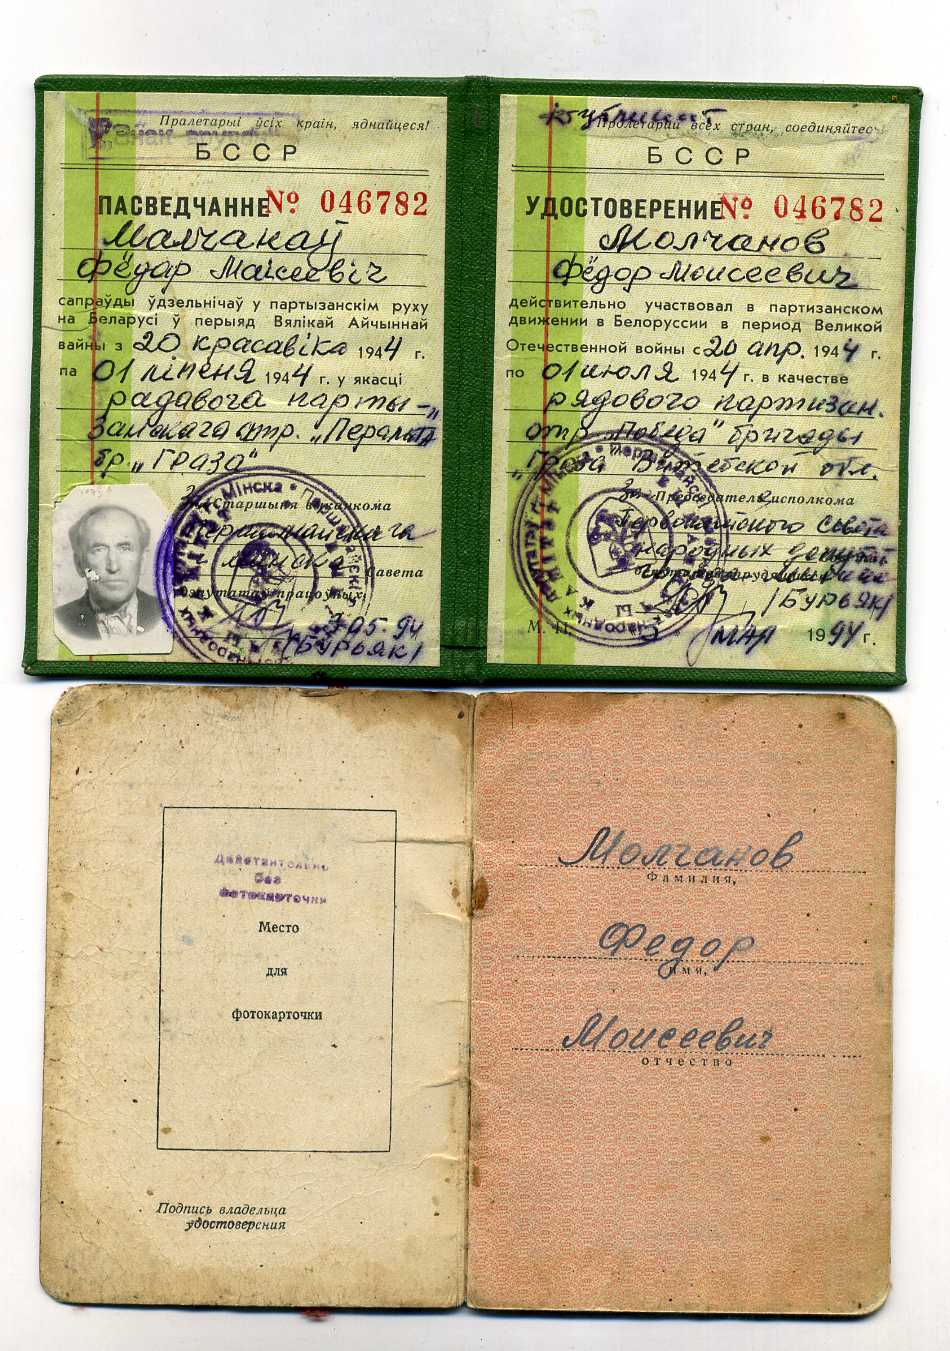 Пралетарыі ўсіх краін, яднайцеся!
БССР
ПАСВЕДЧАННЕ № 046782
Малчанаў
Фёдар Маісеевіч
сапраўды ўдзельнічаў у партызанскім руху
на Беларусі ў перыяд Вялікай Айчыннай
вайны з 20 красавіка 1944 г.
па 01 ліпеня 1944 г. у якасці
радавога парты-
занскага атр. „Перамога"
бр. „Граза"
Старшыня выканкома
Першамайскага
г. Минска Савета
дэпутатаў працоўных
05.94
(Бурьяк)
Пролетарии всех стран, соединяйтесь!
БССР
УДОСТОВЕРЕНИЕ № 046782
Молчанов
Фёдор Моисеевич
действительно участвовал в партизанском
движении в Белоруссии в период Великой
Отечественной войны с 20 апр. 1944 г.
по 01 июля 1944 г. в качестве
рядового партизан.
отр. „Победа" бригады
„Гроза" Витебской обл.
Зам. Председатель исполкома
Первомайского Совета
народных депутатов
(Бурьяк)
М. П. мая 1994 г.
Действительно
без
фотокарточки
Место
для
фотокарточки
Подпись владельца
удостоверения
Молчанов
Фамилия,
Федор
имя,
Моисеевич
отчество